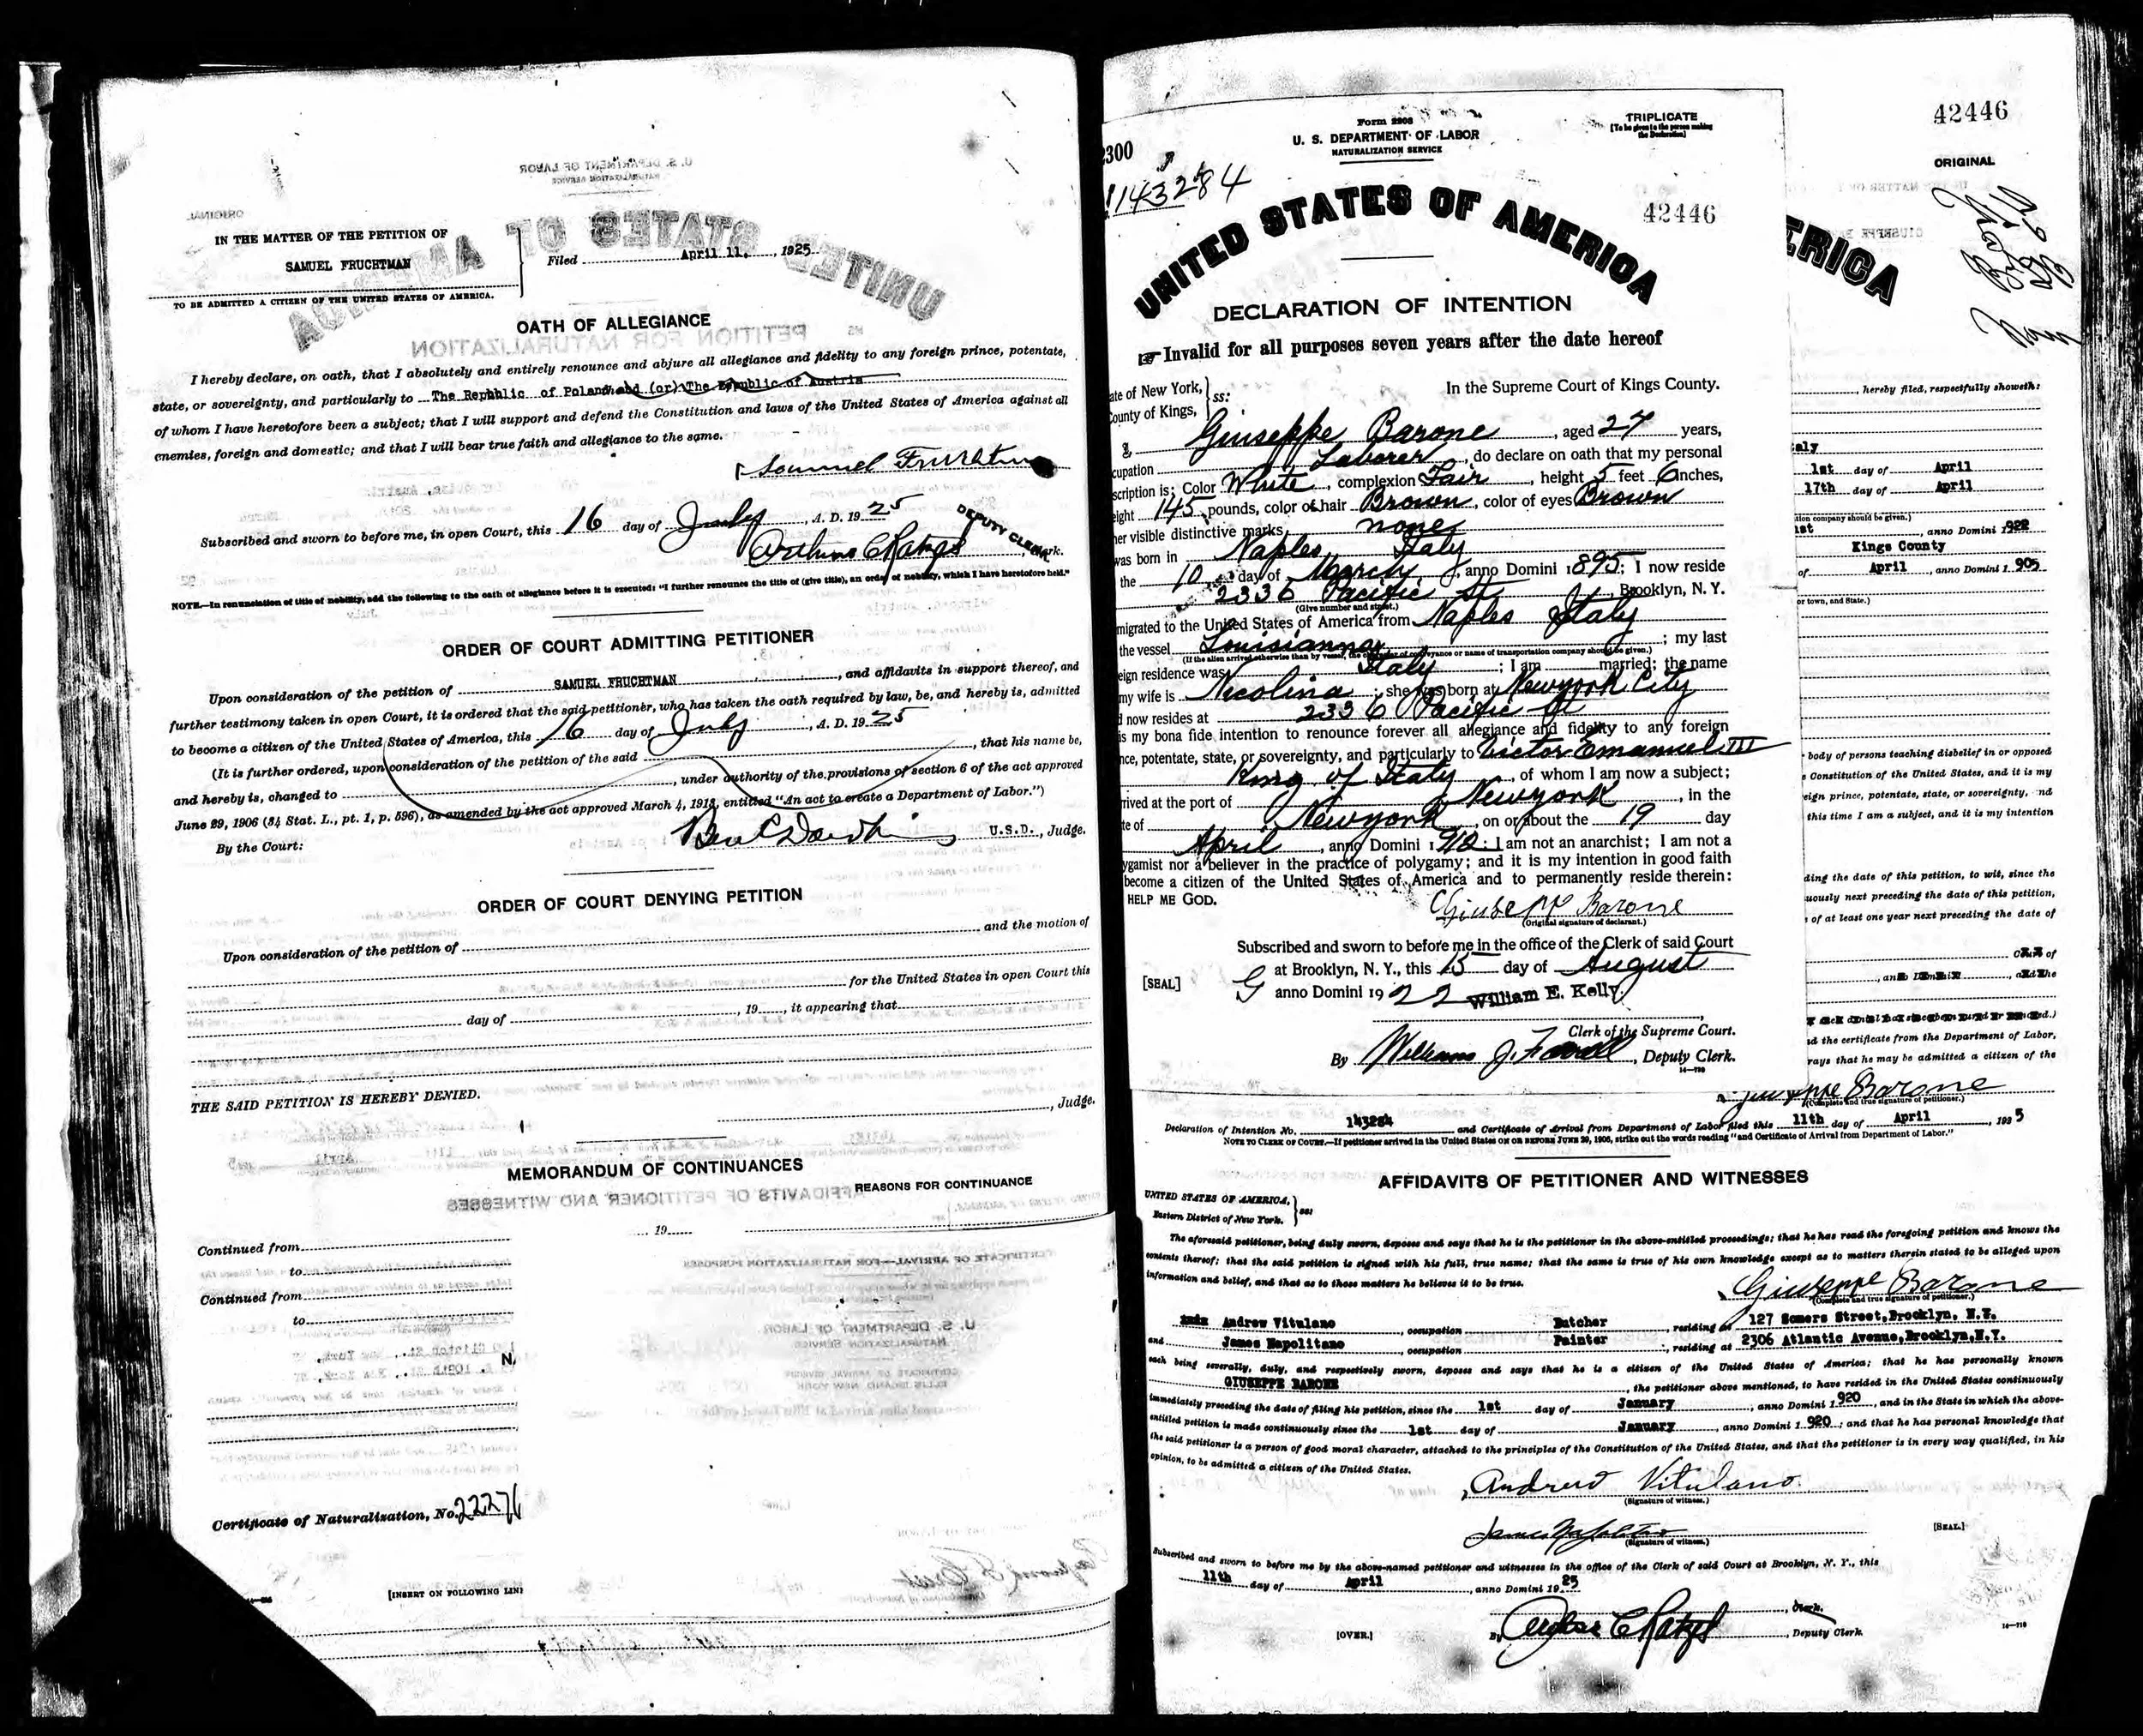 IN THE MATTER OF THE PETITION OF
SAMUEL FRUCHTMAN
TO BE ADMITTED A CITIZEN OF THE UNITED STATES OF AMERICA.
Filed April 11, 1925
OATH OF ALLEGIANCE
I hereby declare, on oath, that I absolutely and entirely renounce and abjure all allegiance and fidelity to any foreign prince, potentate,
state, or sovereignty, and particularly to The Repbblic of Poland and (or) The Republic of Austria
of whom I have heretofore been a subject; that I will support and defend the Constitution and laws of the United States of America against all
enemies, foreign and domestic; and that I will bear true faith and allegiance to the same.
Samuel Fruchtman
Subscribed and sworn to before me, in open Court, this 16 day of July, A. D. 1925
DEPUTY CLERK
Clerk.
NOTE.—In renunciation of title of nobility, add the following to the oath of allegiance before it is executed: "I further renounce the title of (give title), an order of nobility, which I have heretofore held."
ORDER OF COURT ADMITTING PETITIONER
Upon consideration of the petition of SAMUEL FRUCHTMAN, and affidavits in support thereof, and
further testimony taken in open Court, it is ordered that the said petitioner, who has taken the oath required by law, be, and hereby is, admitted
to become a citizen of the United States of America, this 16 day of July, A. D. 1925
(It is further ordered, upon consideration of the petition of the said, that his name be,
and hereby is, changed to, under authority of the provisions of section 6 of the act approved
June 29, 1906 (34 Stat. L., pt. 1, p. 596), as amended by the act approved March 4, 1913, entitled "An act to create a Department of Labor.")
By the Court:
U.S.D., Judge.
ORDER OF COURT DENYING PETITION
Upon consideration of the petition of and the motion of
for the United States in open Court this
day of, 19, it appearing that
THE SAID PETITION IS HEREBY DENIED.
, Judge.
MEMORANDUM OF CONTINUANCES
REASONS FOR CONTINUANCE
19
Continued from
to
Continued from
to
Certificate of Naturalization, No. 22276
[INSERT ON FOLLOWING LINE
2300
143284
Form 2203
U. S. DEPARTMENT OF LABOR
NATURALIZATION SERVICE
TRIPLICATE
[To be given to the person making the Declaration]
42446
UNITED STATES OF AMERICA
DECLARATION OF INTENTION
☞ Invalid for all purposes seven years after the date hereof
ate of New York,
County of Kings, ss:
In the Supreme Court of Kings County.
Giuseppe Barone, aged 27 years,
cupation Laborer, do declare on oath that my personal
scription is: Color White, complexion Fair, height 5 feet 6 inches,
eight 145 pounds, color of hair Brown, color of eyes Brown
her visible distinctive marks none
was born in Naples Italy
the 10 day of March, anno Domini 1895; I now reside
2336 Pacific St, Brooklyn, N. Y.
(Give number and street.)
migrated to the United States of America from Naples Italy
the vessel Louisianna; my last
(If the alien arrived otherwise than by vessel, the character of conveyance or name of transportation company should be given.)
eign residence was Italy; I am married; the name
my wife is Nicolina; she was born at Newyork City
d now resides at 2336 Pacific St
is my bona fide intention to renounce forever all allegiance and fidelity to any foreign
nce, potentate, state, or sovereignty, and particularly to Victor Emanuel III
King of Italy, of whom I am now a subject;
rrived at the port of Newyork, in the
te of Newyork, on or about the 19 day
April, anno Domini 1912: I am not an anarchist; I am not a
ygamist nor a believer in the practice of polygamy; and it is my intention in good faith
become a citizen of the United States of America and to permanently reside therein:
HELP ME GOD.
Giuseppe Barone
(Original signature of declarant.)
Subscribed and sworn to before me in the office of the Clerk of said Court
[SEAL] at Brooklyn, N. Y., this 15 day of August
anno Domini 1922 William E. Kelly.
Clerk of the Supreme Court.
By William J. Farrell, Deputy Clerk.
42446
ORIGINAL
ERICA
, hereby filed, respectfully showeth:
aly
1st day of April
17th day of April
tion company should be given.)
1st, anno Domini 1922
Kings County
of April, anno Domini 1905
or town, and State.)
body of persons teaching disbelief in or opposed
Constitution of the United States, and it is my
eign prince, potentate, state, or sovereignty, nd
this time I am a subject, and it is my intention
ding the date of this petition, to wit, since the
uously next preceding the date of this petition,
of at least one year next preceding the date of
nd the certificate from the Department of Labor,
rays that he may be admitted a citizen of the
Giuseppe Barone
(Complete and true signature of petitioner.)
Declaration of Intention No. 143284 and Certificate of Arrival from Department of Labor filed this 11th day of April, 1925
NOTE TO CLERK OF COURT.—If petitioner arrived in the United States ON OR BEFORE JUNE 29, 1906, strike out the words reading "and Certificate of Arrival from Department of Labor."
AFFIDAVITS OF PETITIONER AND WITNESSES
UNITED STATES OF AMERICA,
Eastern District of New York. ss:
The aforesaid petitioner, being duly sworn, deposes and says that he is the petitioner in the above-entitled proceedings; that he has read the foregoing petition and knows the
contents thereof; that the said petition is signed with his full, true name; that the same is true of his own knowledge except as to matters therein stated to be alleged upon
information and belief, and that as to those matters he believes it to be true.
Giuseppe Barone
(Complete and true signature of petitioner.)
Andrew Vitulano, occupation Butcher, residing at 127 Somers Street, Brooklyn, N.Y.
and James Napolitano, occupation Painter, residing at 2306 Atlantic Avenue, Brooklyn, N.Y.
each being severally, duly, and respectively sworn, deposes and says that he is a citizen of the United States of America; that he has personally known
GIUSEPPE BARONE, the petitioner above mentioned, to have resided in the United States continuously
immediately preceding the date of filing his petition, since the 1st day of January, anno Domini 1920, and in the State in which the above-
entitled petition is made continuously since the 1st day of January, anno Domini 1920; and that he has personal knowledge that
the said petitioner is a person of good moral character, attached to the principles of the Constitution of the United States, and that the petitioner is in every way qualified, in his
opinion, to be admitted a citizen of the United States.
Andrew Vitulano
(Signature of witness.)
James Napolitano
(Signature of witness.)
[SEAL.]
Subscribed and sworn to before me by the above-named petitioner and witnesses in the office of the Clerk of said Court at Brooklyn, N. Y., this
11th day of April, anno Domini 1925
, Clerk.
[OVER.]
By, Deputy Clerk.